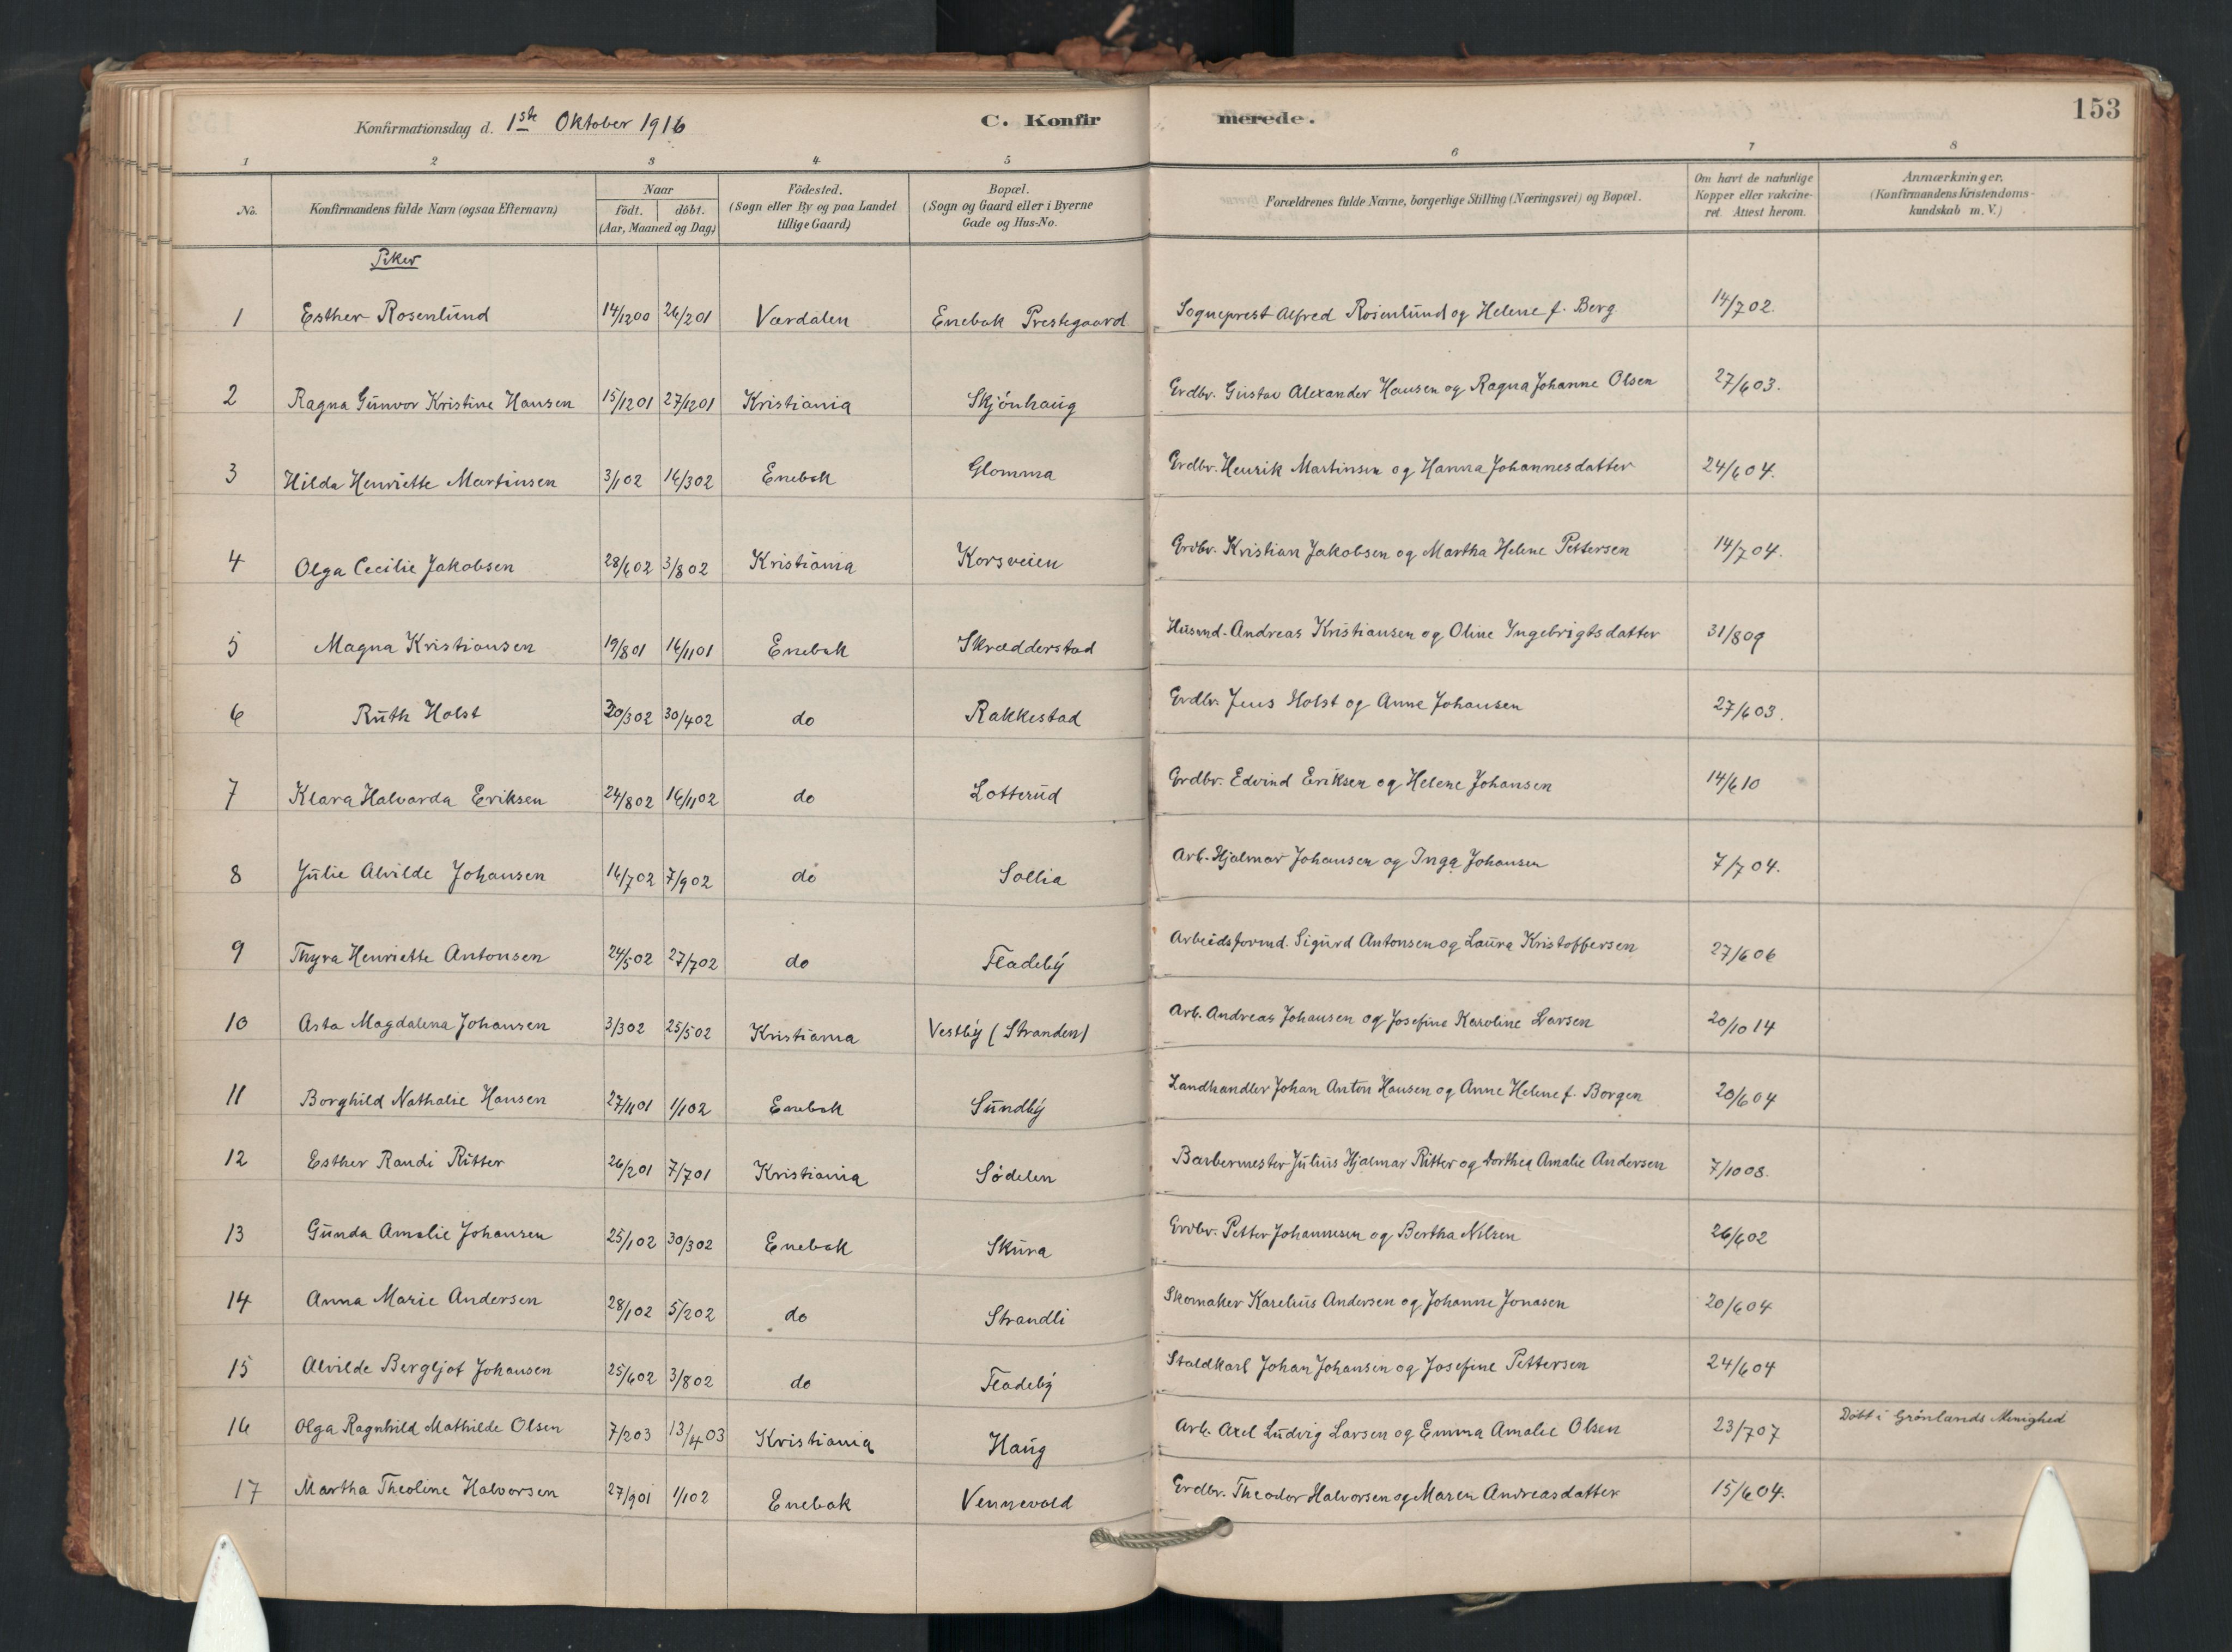 Konfirmationsdag d. 1ste Oktober 1916 C. Konfirmerede. 153
1 2 3 4 5 6 7 8
No. Konfirmandens fulde Navn (ogsaa Efternavn) Naar födt. döbt. (Aar, Maaned og Dag) Födested. (Sogn eller By og paa Landet tillige Gaard) Bopæl. (Sogn og Gaard eller i Byerne Gade og Hus-No. Forældrenes fulde Navne, borgerlige Stilling (Næringsvei) og Bopæl. Om havt de naturlige Kopper eller vakcineret. Attest herom. Anmærkninger. (Konfirmandens Kristendomskundskab m.V.)
Piker
1 Esther Rosenlund 14/1200 26/201 Værdalen Enebak Prestegaard Sogneprest Alfred Rosenlund og Helene f. Berg 14/702.
2 Ragna Gunvor Kristine Hansen 15/1201 27/1201 Kristiania Skjönhaug Grdbr. Gustav Alexander Hansen og Ragna Johanne Olsen 27/603.
3 Hilda Henriette Martinsen 3/102 16/302 Enebak Glomma Grdbr. Henrik Martinsen og Hanna Johannesdatter 24/604.
4 Olga Cecilie Jakobsen 28/602 3/802 Kristiania Korsveien Grdbr. Kristian Jakobsen og Martha Helene Pettersen 14/704.
5 Magna Kristiansen 19/801 16/1101 Enebak Skrædderstad Husmd. Andreas Kristiansen og Oline Ingebrigtsdatter 31/809
6 Ruth Holst 20/302 30/402 do Rakkestad Grdbr. Jens Holst og Anne Johansen 27/603.
7 Klara Halvarda Eriksen 24/802 16/1102 do Lotterud Grdbr. Edvind Eriksen og Helene Johansen 14/610
8 Julie Alvilde Johansen 16/702 7/902 do Sollia Arb. Hjalmar Johansen og Inga Johansen 7/704.
9 Thyra Henriette Antonsen 24/502 27/702 do Fladeby Arbeidsformd. Sigurd Antonsen og Laura Kristoffersen 27/606
10 Asta Magdalena Johansen 3/302 25/502 Kristiania Vestby (Stranden) Arb. Andreas Johansen og Josefine Karoline Larsen 20/1014
11 Borghild Nathalie Hansen 27/1101 1/102 Enebak Sundby Landhandler Johan Anton Hansen og Anne Helene f. Borgen 20/604
12 Esther Randi Ritter 26/201 7/701 Kristiania Södelen Barbermester Julius Hjalmar Ritter og Dorthea Amalie Andersen 7/1008.
13 Gunda Amalie Johansen 25/102 30/302 Enebak Skura Grdbr. Petter Johannesen og Bertha Nilsen 26/602
14 Anna Marie Andersen 28/102 5/202 do Strandli Skomaker Karelius Andersen og Johanne Jonasen 20/604
15 Alvilde Bergljot Johansen 25/602 3/802 do Fladeby Staldkarl Johan Johansen og Josefine Pettersen 24/604
16 Olga Ragnhild Mathilde Olsen 7/203 13/403 Kristiania Haug Arb. Axel Ludvig Larsen og Emma Amalie Olsen 23/707 Döbt i Grönlands Menighed
17 Martha Theoline Halvorsen 27/901 1/102 Enebak Vennevold Grdbr. Theodor Halvorsen og Maren Andreasdatter 15/604.